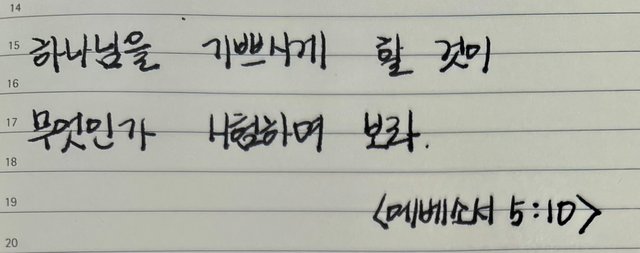 14
15
하나님을 기쁘시게 할 것이
16
17
무엇인가 시험하여 보라.
18
19
<에베소서 5:10>
20